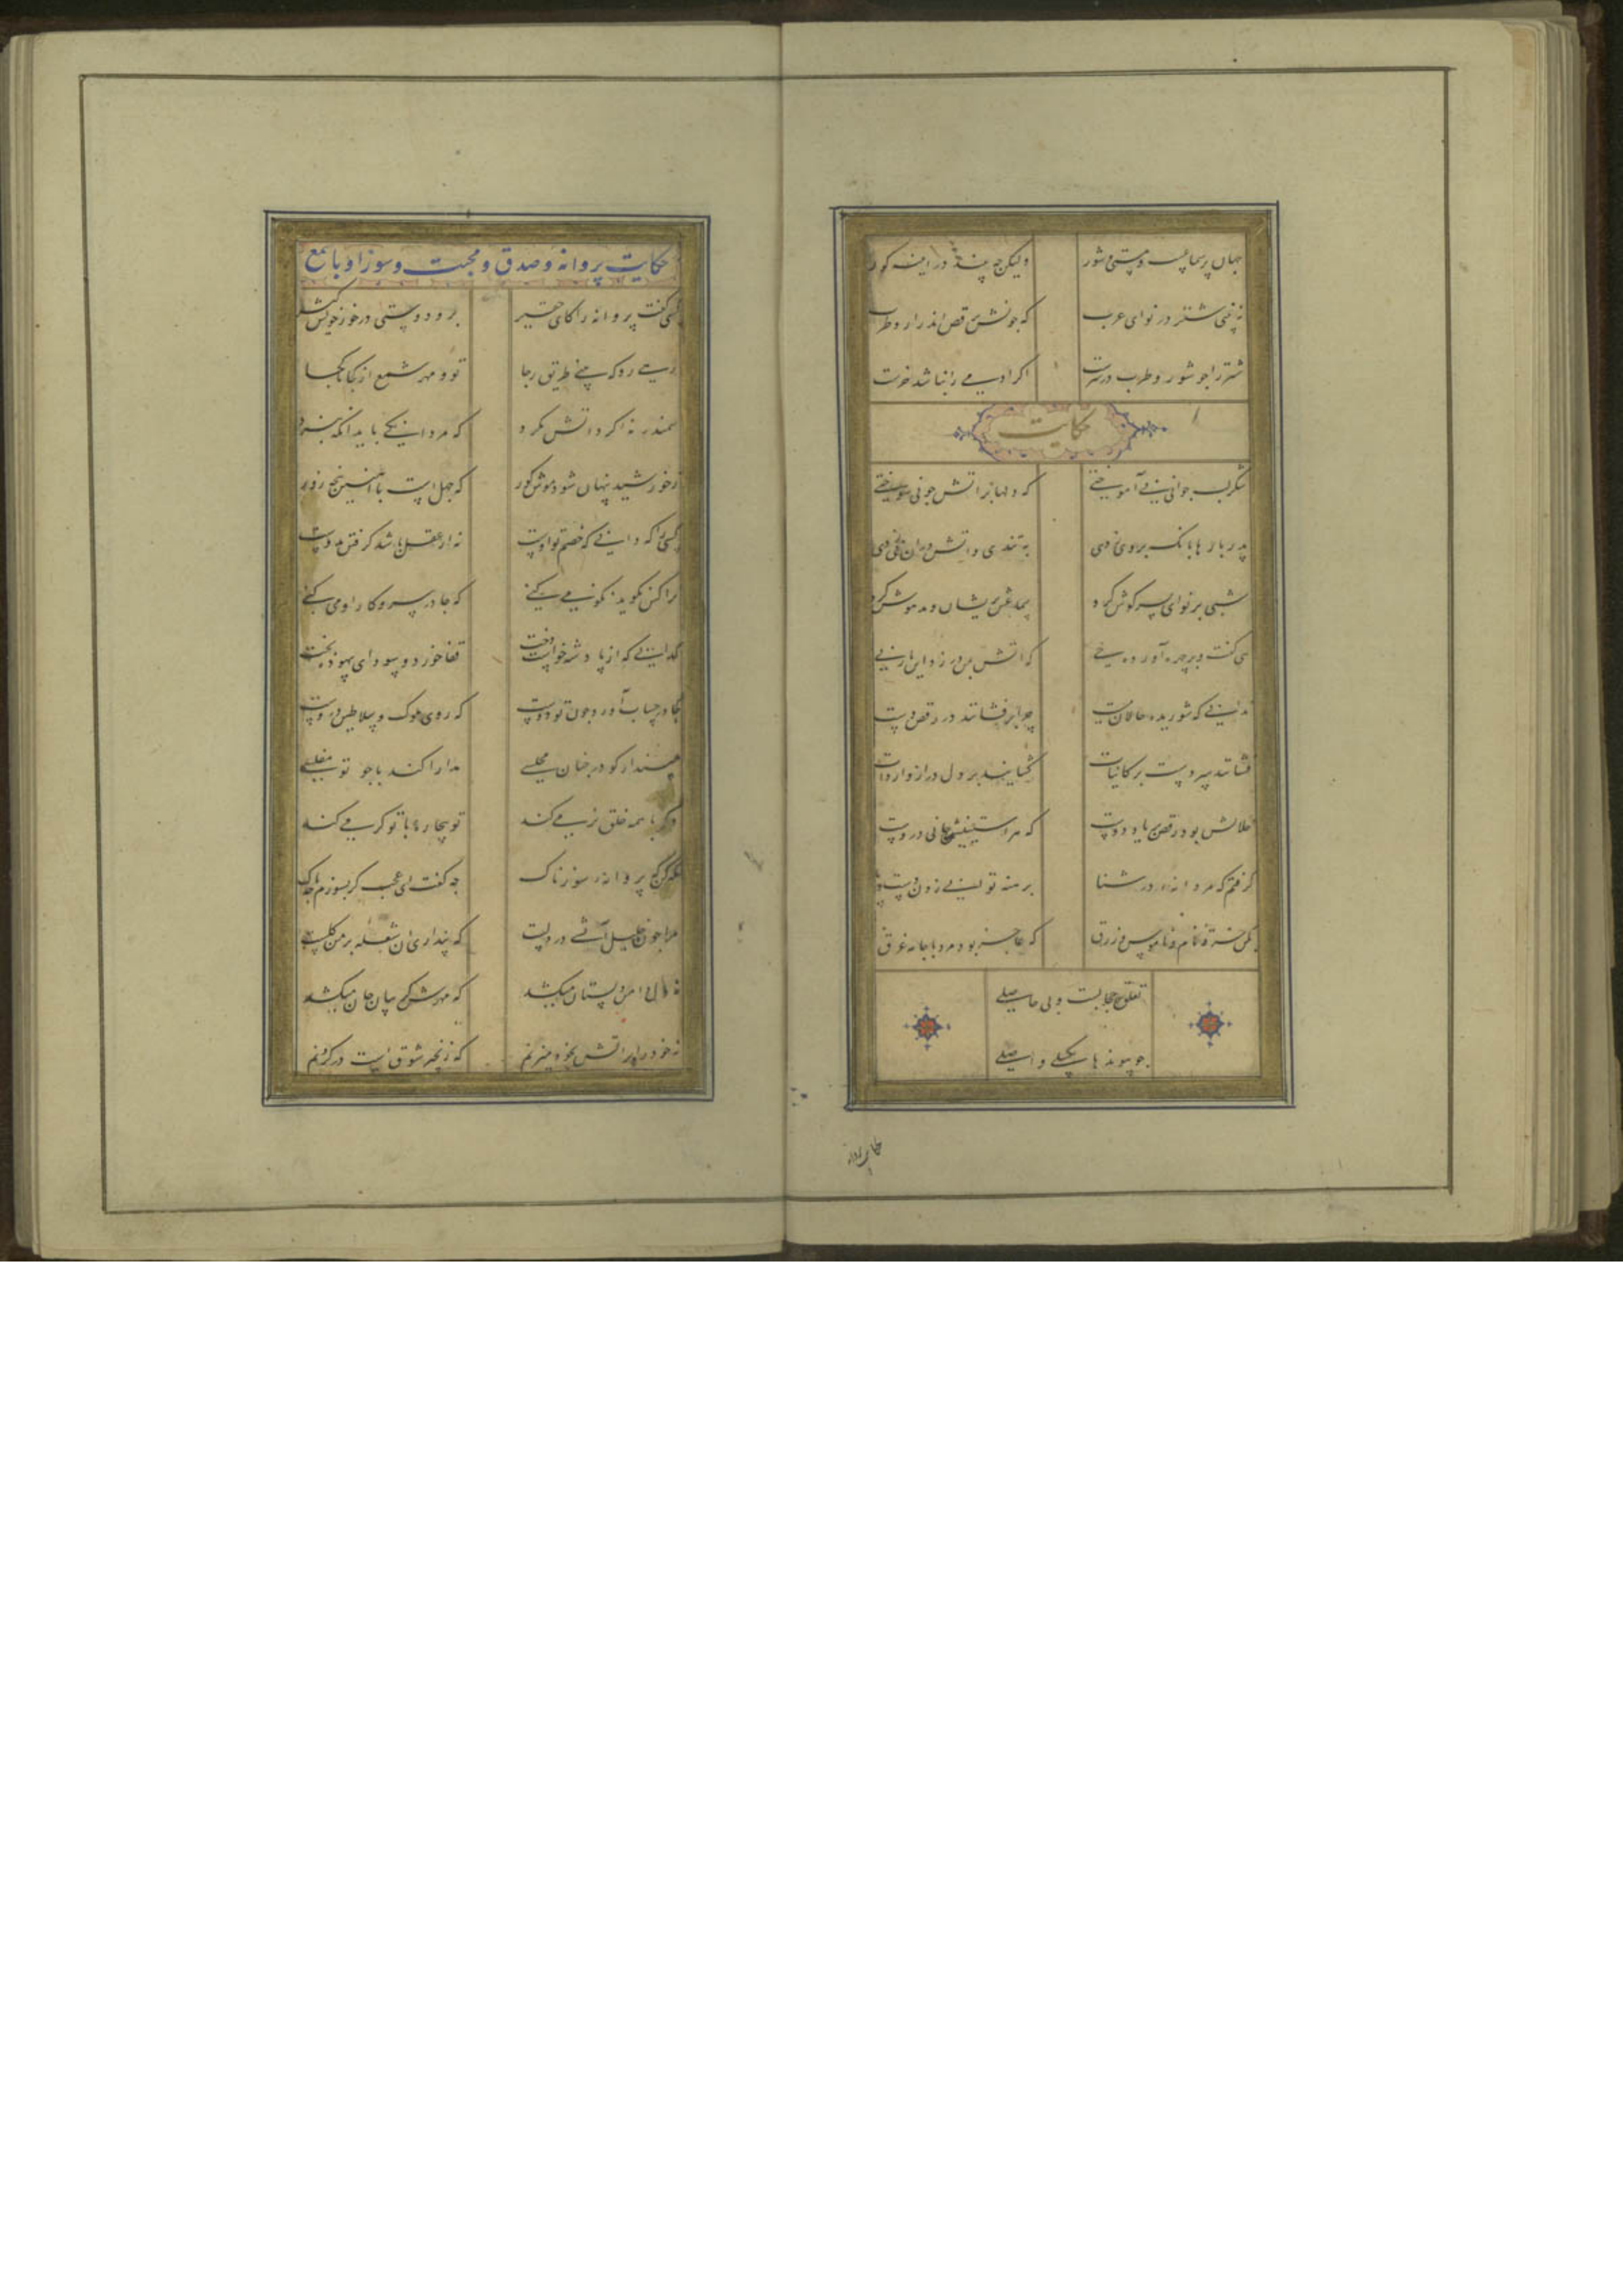 جهان پر سماعست و مستی و شور ولیکن چه بیند در اینه کور
نه بینی شتر در نوای عرب که چونش برقص اندر ارد طرب
شتر را چو شور و طرب در سرست اگر ادمی را نباشد خرست
حکایت
شکر لب جوانی نی آموختی که دلها بر اتش چو نی سوختی
پدر بارها بانک بر وی زدی به تندی و اتش در ان نی زدی
شبی بر نوای پسر گوش کرد سماعش پریشان و مدهوش کرد
همی گفت و بر چهره آورده خوی که اتش بمن در زد این بار نی
ندانی که شوریده حالان مست چرا بر فشانند در رقص دست
گشایند بر دل در از واردات فشانند سر دست بر کاینات
حلالش بود رقص بر یاد دوست که هر استینیش جانی دروست
گرفتم که مردانه‌ در شنا برهنه توانی زدن دست و پا
بکن خرقه نام و ناموس و زرق که عاجز بود مرد با جامه غرق
تعلق حجابست و بی حاصلی
چو پیوندها بگسلی واصلی
حکایت پروانه و صدق و محبت و سوز او با شمع
کسی گفت پروانه را کای حقیر برو دوستی در خور خویش گیر
رهی رو که بینی طریق رجا تو و مهر شمع از کجا تا کجا
سمندر نه گرد اتش مگرد که مردانگی باید انگه نبرد
ز خورشید پنهان شود موش کور که جهل است با اهنین پنجه زور
کسی را که دانی که خصم تو اوست نه از عقل باشد گرفتن بدوست
ترا کس نگوید نکو می کنی که جا در سر و کار او می کنی
گدایی که از پادشه خواست دخت قفا خورد و سودای بیهوده پخت
کجا در حساب آورد چون تو دوست که روی ملوک و سلاطین دروست
مپندار کو در چنان مجلسی مدارا کند با چو تو مفلسی
وگر با همه خلق نرمی کند تو بیچاره با تو گرمی کند
نگه کن که پروانه سوزناک چه گفت ای عجب گر بسوزم چه باک
مرا چون خلیل آتشی در دلست که پنداری ان شعله بر من گلست
نه دل دامن دلستان میکشد که مهرش گریبان جان میکشد
نه خود را بر اتش بخود میزنم که زنجیر شوق است در گردنم